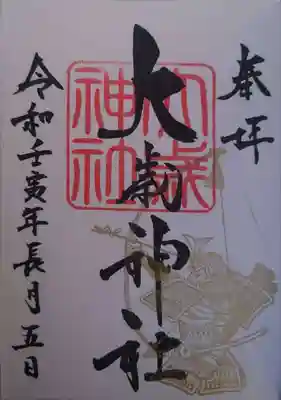 奉拝
大歳神社
大歳
神社
令和壬寅年長月五日